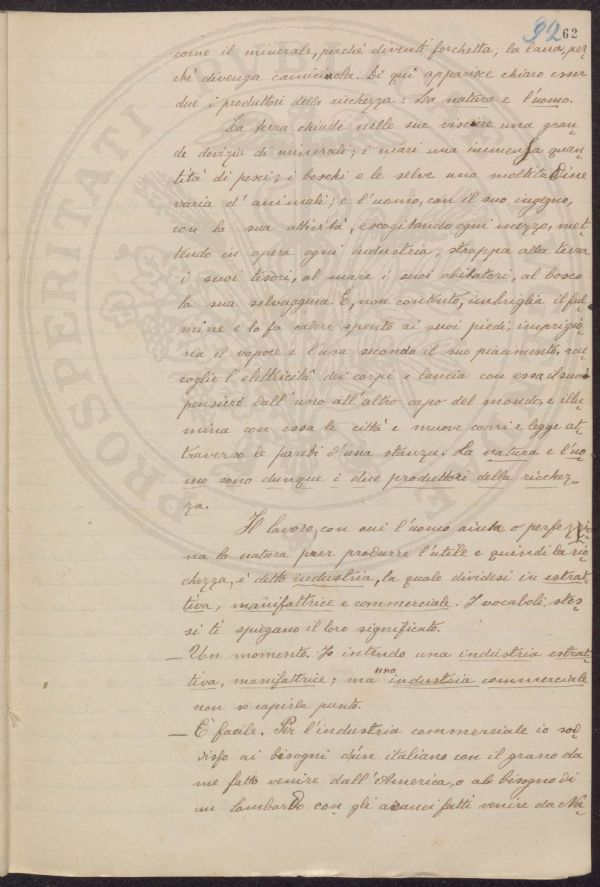 92 62
come il minerale, perchè diventi forchetta; la lana, per-
chè divenga camiciuola. Di qui apparisce chiaro esser
due i produttori della ricchezza: La natura e l'uomo.
La terra chiude nelle sue viscere una gran-
de dovizia di minerali; i mari una immensa quan-
tità di pesci; i boschi e le selve una moltitudine
varia d'animali; e l'uomo, con il suo ingegno,
con la sua attività, escogitando ogni mezzo, met-
tendo in opera ogni industria, strappa alla terra
i suoi tesori, al mare i suoi abitatori, al bosco
la sua selvaggina. E, non contento, imbriglia il ful-
mine e lo fa cadere spento ai suoi piedi, imprigio-
na il vapore e l'usa secondo il suo piacimento, rac-
coglie l'elettricità dei corpi e lancia con essa il suo
pensiero dall'uno all'altro capo del mondo, e illu-
mina con essa le città e muove carri e legge at-
traverso le pareti d'una stanza. La natura e l'uo-
mo sono dunque i due produttori della ricchez-
za.
Il lavoro, con cui l'uomo aiuta o perfezzio-
na la natura per produrre l'utile e quindi la ric-
chezza, è detto industria, la quale dividesi in estrat-
tiva, manifattrice e commerciale. I vocaboli stes-
si ti spiegano il loro significato.
— Un momento. Io intendo una industria estrat-
tiva, manifattrice; ma una industria commerciale
non so capirla punto.
— È facile. Per l'industria commerciale io sod-
disfo ai bisogni d'un italiano con il grano da
me fatto venire dall'America, o al bisogno di
un lombardo con gli aranci fatti venire da Na-
PROSPERITATI PUBLICAE